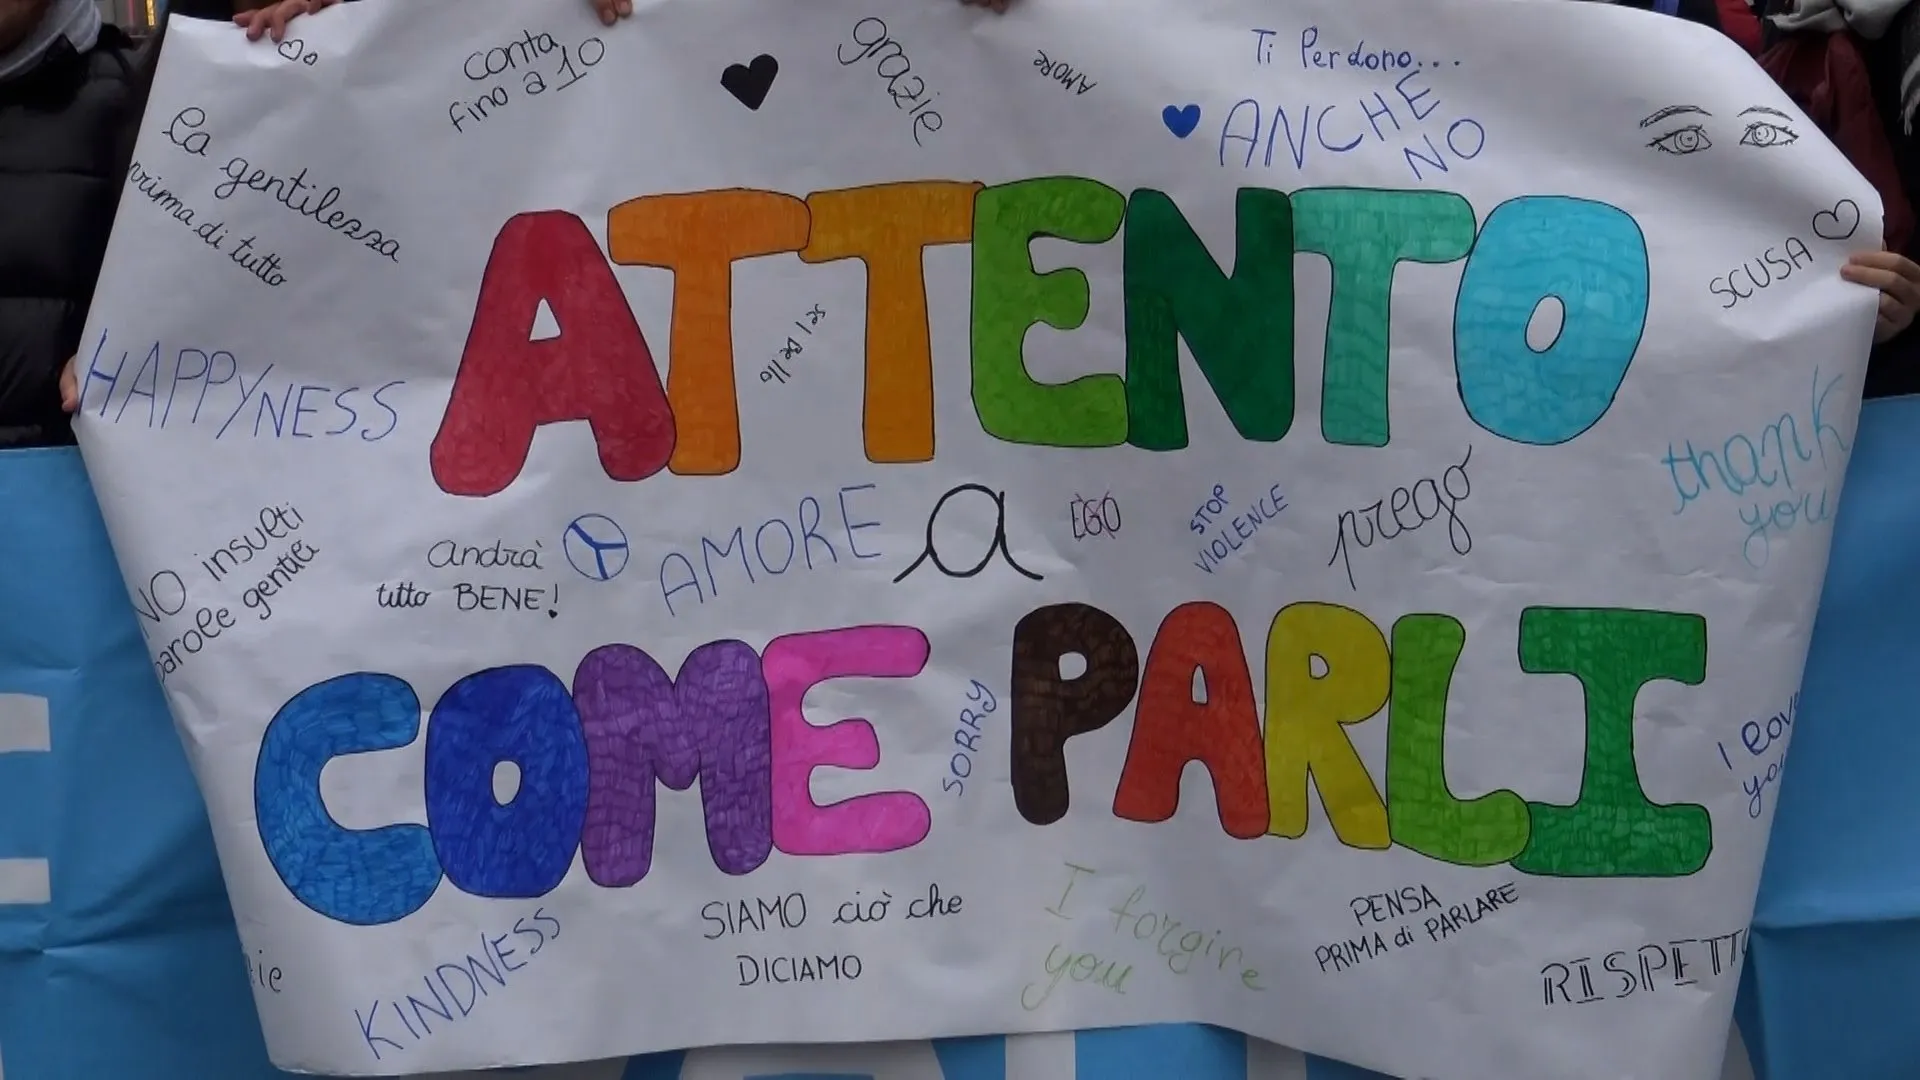 conta
fino a 10
grazie
AMORE
Ti Perdono...
ANCHE
NO
la gentilezza
prima di tutto
ATTENTO
SCUSA
sei Bello
HAPPYNESS
thank
you
NO insulti
parole gentili
andrà
tutto BENE!
AMORE
a
EGO
STOP
VIOLENCE
prego
COME PARLI
SORRY
I love
you
SIAMO ciò che
DICIAMO
I forgive
you
PENSA
PRIMA di PARLARE
KINDNESS
RISPETTO